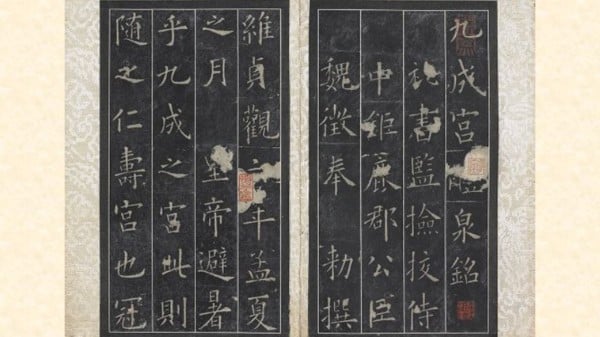 九成宮醴泉銘
秘書監撿挍侍
中鉅鹿郡公臣
魏徵奉 勅撰
維貞觀六年孟夏
之月 皇帝避暑
乎九成之宮此則
随之仁壽宮也冠